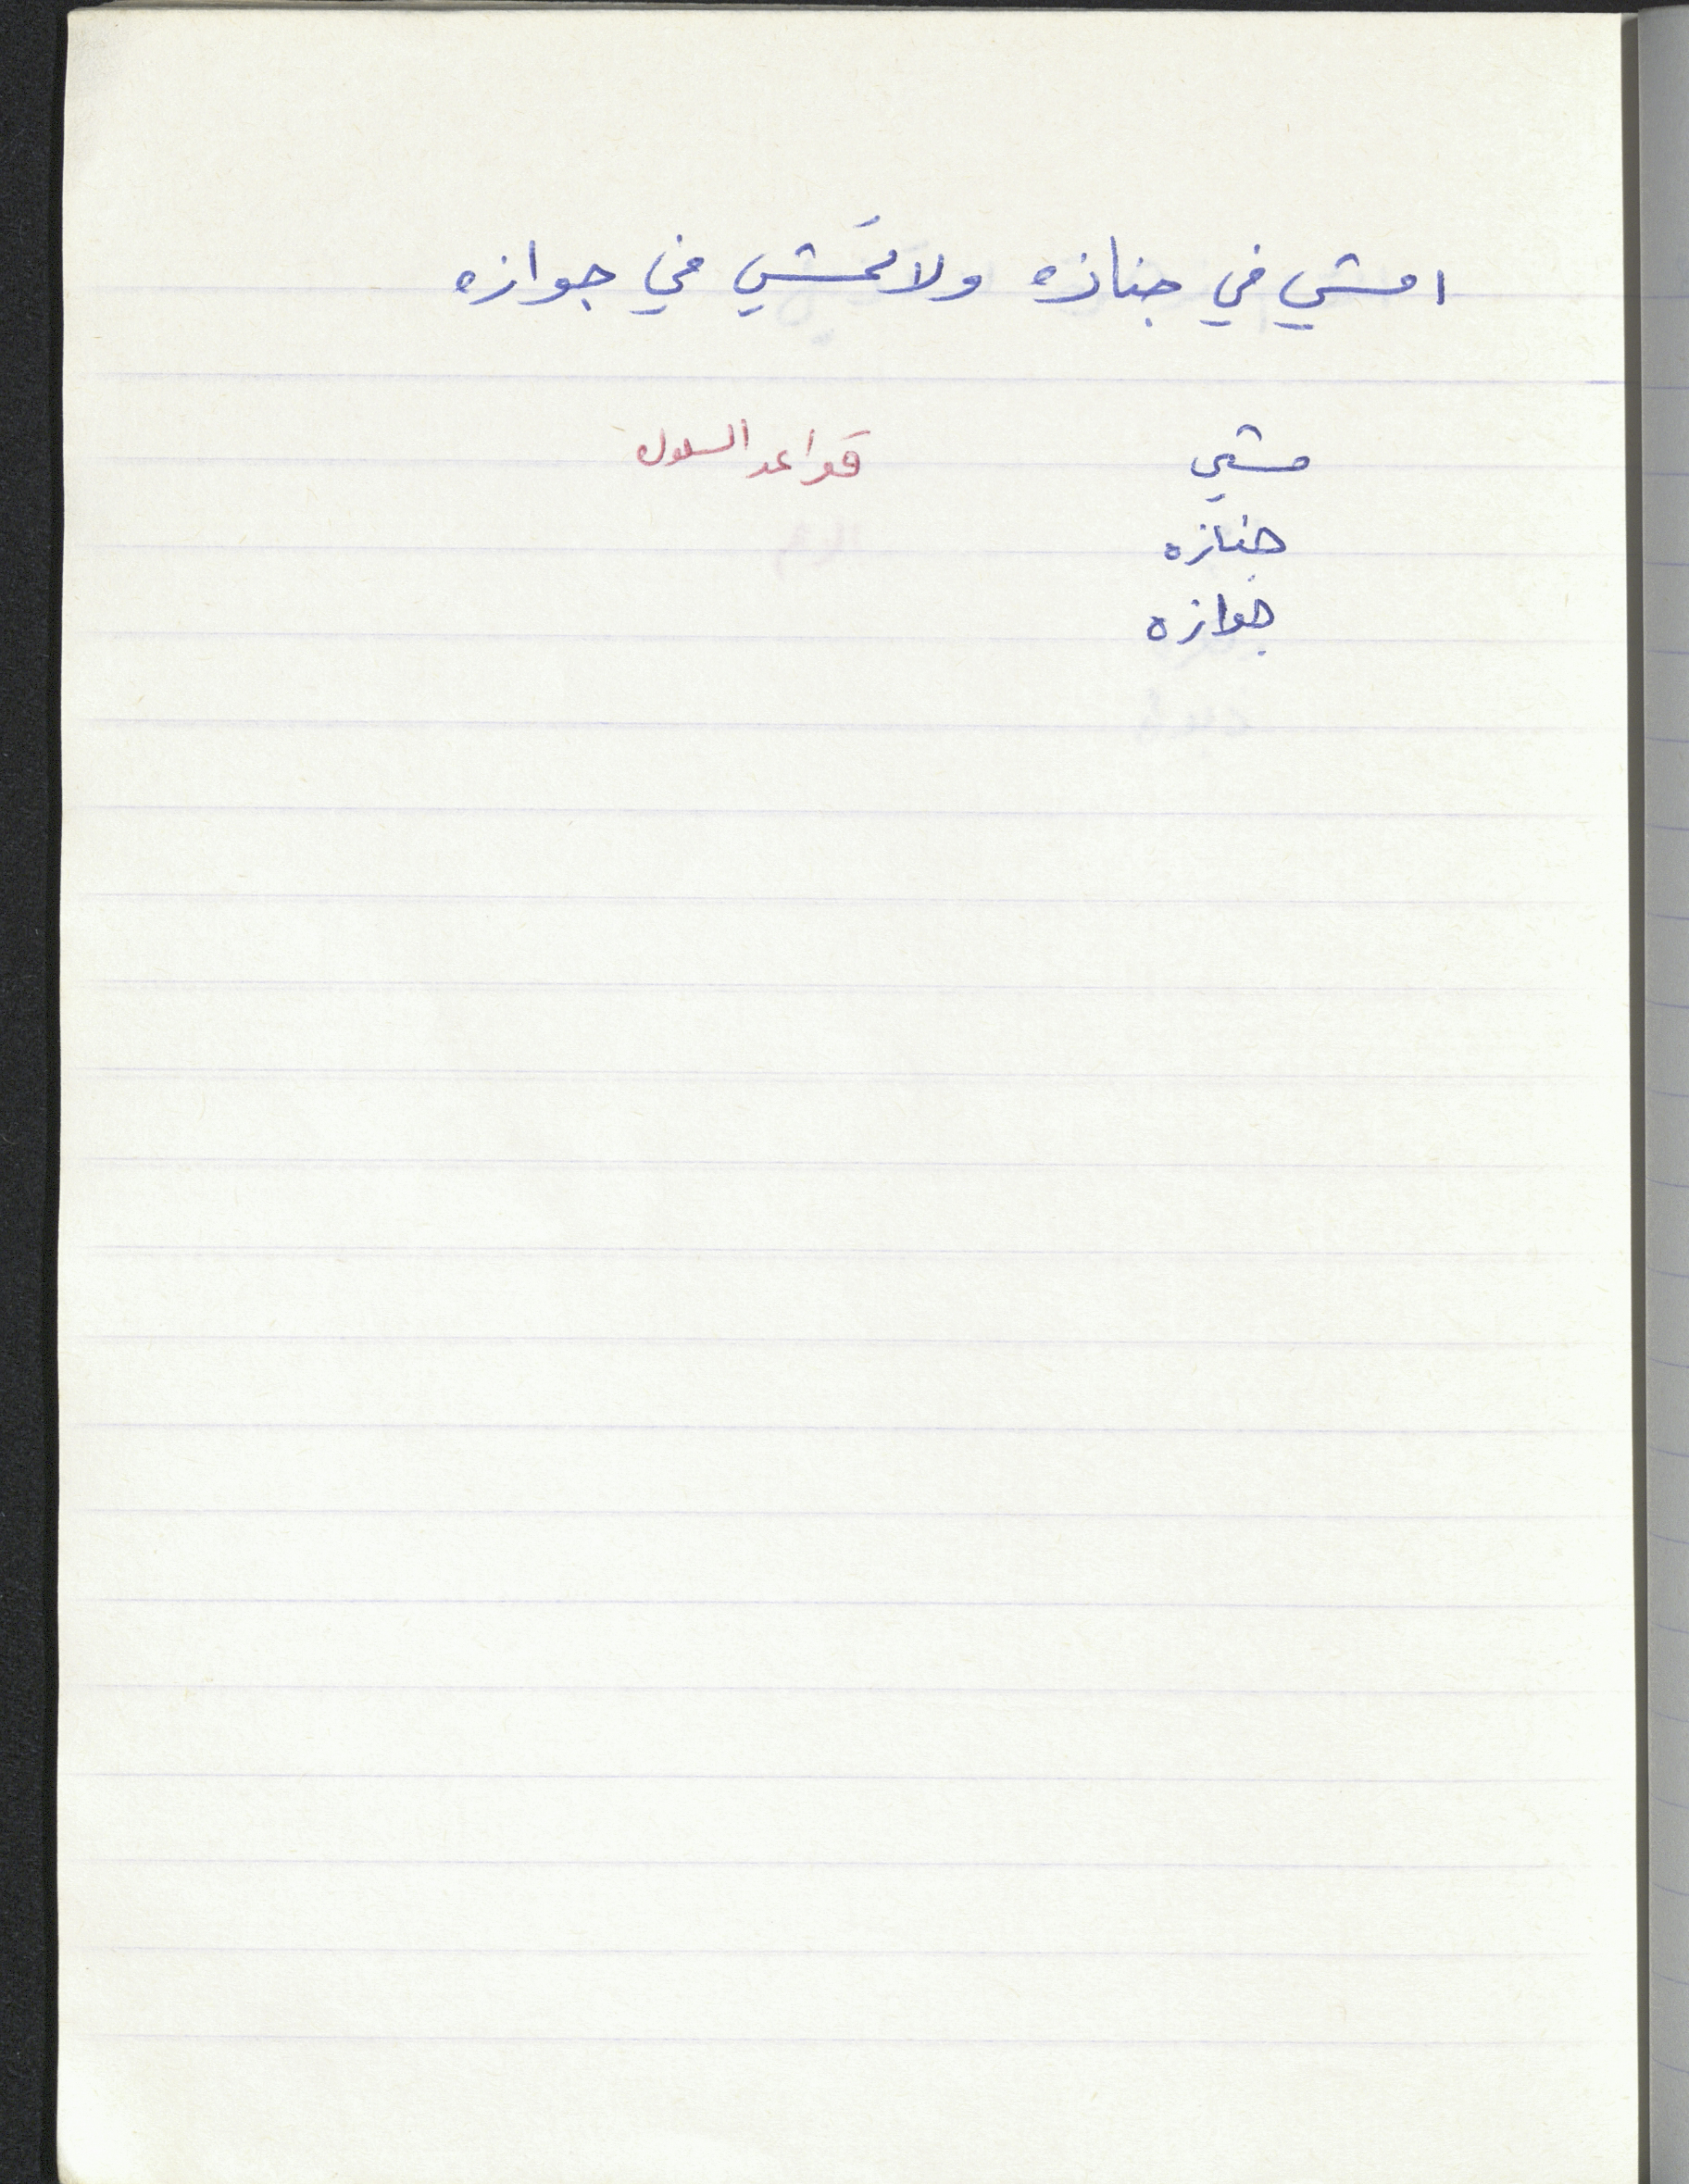 امشي في جنازه ولا تمشي في جوازه
مشي
قواعد السلوك
جنازه
جوازه